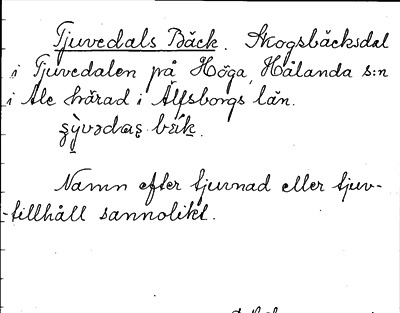 Tjuvedals Bäck. Skogsbäcksdal
i Tjuvedalen på Höga, Hålanda s:n
i Ale härad i Älfsborgs län.
Namn efter tjuvnad eller tjuv-
-tillhåll sannolikt.